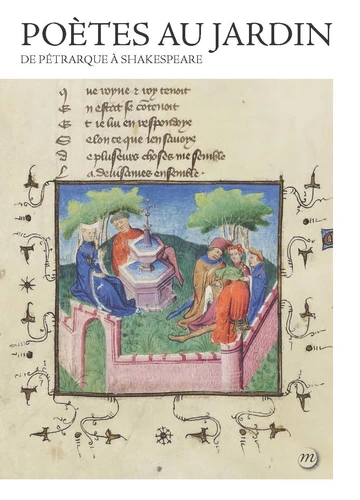 POÈTES AU JARDIN
DE PÉTRARQUE À SHAKESPEARE
Q ue royne z roy tenoit
E n estat se cōtenoit
E t ie lui en respondoye
S elon ce que ien sauoye
D e plusieurs choses me semble
L a deuisames ensemble
m